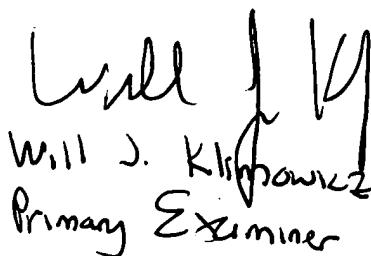 Will J. Kl
Will J. Klimowicz
Primary Examiner